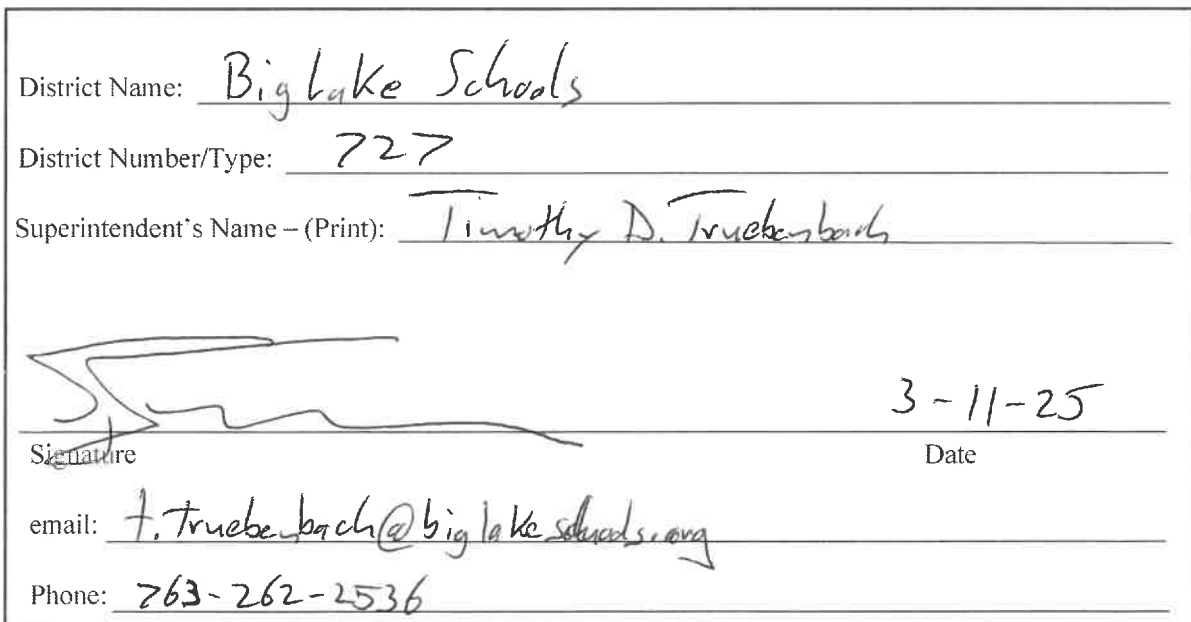 District Name: Big Lake Schools
District Number/Type: 727
Superintendent's Name – (Print): Timothy D. Truebenbach
3-11-25
Signature Date
email: t.truebenbach@biglakeschools.org
Phone: 763-262-2536